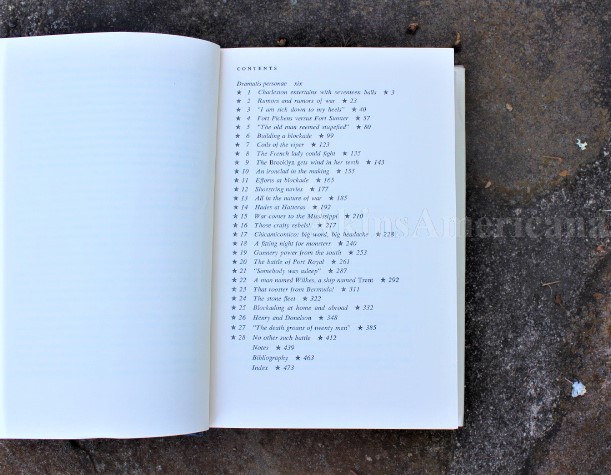 CONTENTS
Dramatis personae xix
★ 1 Charleston entertains with seventeen balls ★ 3
★ 2 Rumors and rumors of war ★ 23
★ 3 "I am sick down to my heels" ★ 40
★ 4 Fort Pickens versus Fort Sumter ★ 57
★ 5 "The old man seemed stupefied" ★ 80
★ 6 Building a blockade ★ 99
★ 7 Coils of the viper ★ 123
★ 8 The French lady could fight ★
★ 9 The Brooklyn gets wind in her teeth ★ 143
★ 10 An ironclad in the making ★ 155
★ 11 Efforts at blockade ★ 165
★ 12 Shoestring navies ★ 177
★ 13 All in the nature of war ★ 185
★ 14 Hades at Hatteras ★ 192
★ 15 War comes to the Mississippi ★ 210
★ 16 Those crafty rebels! ★ 217
★ 17 Chicamicomico: big word, big headache ★ 228
★ 18 A fitting night for monsters ★ 240
★ 19 Gunnery power from the south ★ 253
★ 20 The battle of Port Royal ★ 261
★ 21 "Somebody was asleep" ★ 287
★ 22 A man named Wilkes, a ship named Trent ★ 292
★ 23 That rooster from Bermuda! ★ 311
★ 24 The stone fleet ★ 322
★ 25 Blockading at home and abroad ★ 332
★ 26 Henry and Donelson ★ 348
★ 27 "The death groans of twenty men" ★ 385
★ 28 No other such battle ★ 412
Notes ★ 439
Bibliography ★ 463
Index ★ 473